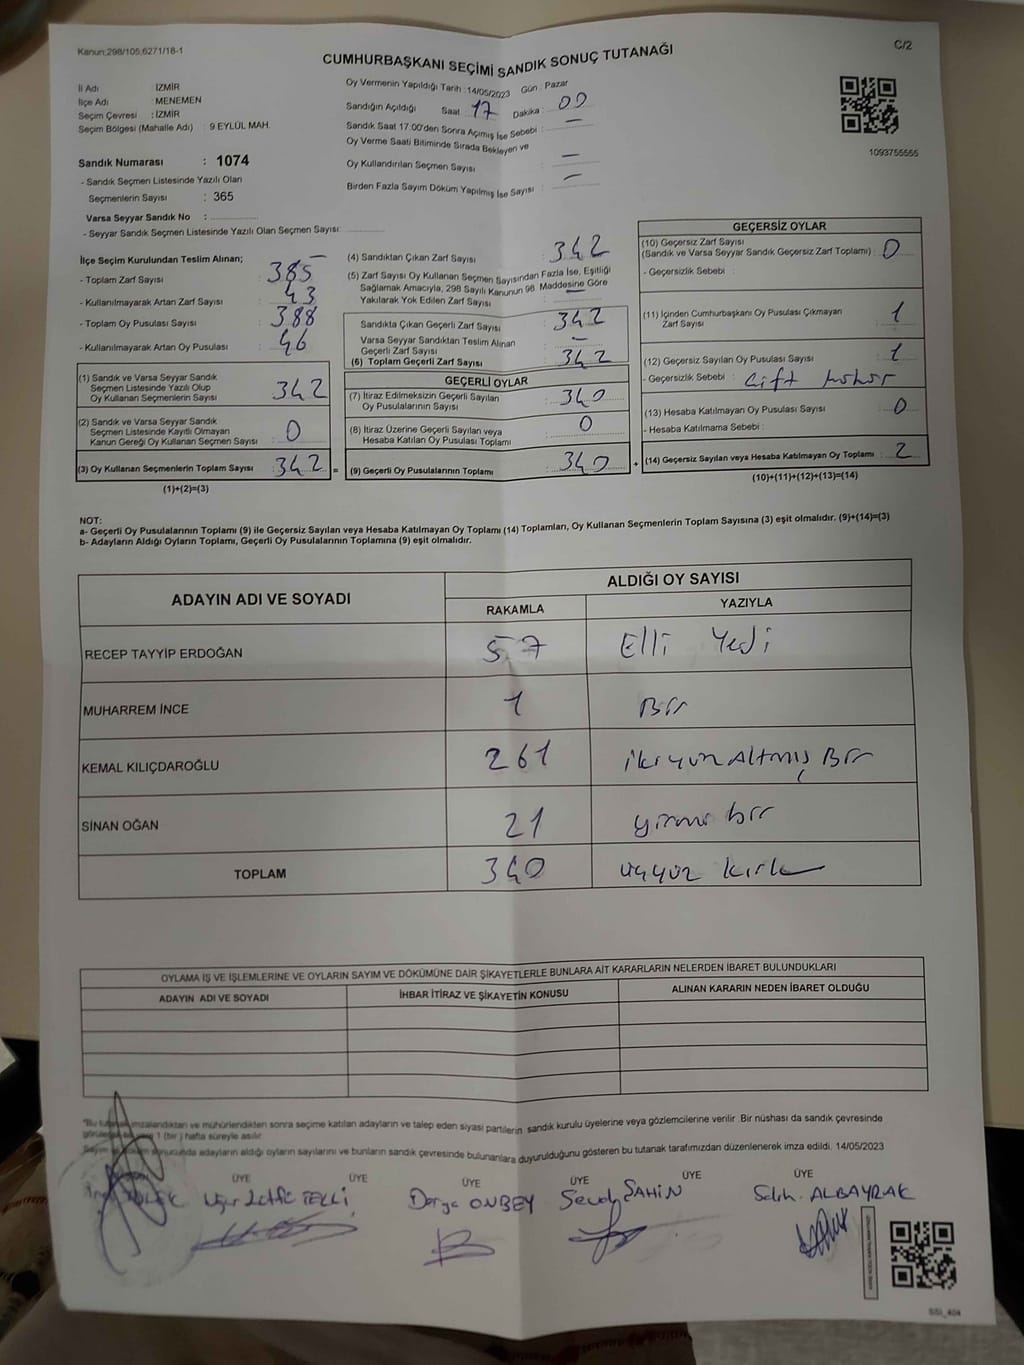 Kanun:298/105,6271/18-1
C/2
CUMHURBAŞKANI SEÇİMİ SANDIK SONUÇ TUTANAĞI
İl Adı İZMİR
İlçe Adı : MENEMEN
Seçim Çevresi : İZMİR
Seçim Bölgesi (Mahalle Adı) : 9 EYLÜL MAH.
Sandık Numarası : 1074
- Sandık Seçmen Listesinde Yazılı Olan
Seçmenlerin Sayısı : 365
Varsa Seyyar Sandık No :
- Seyyar Sandık Seçmen Listesinde Yazılı Olan Seçmen Sayısı:
Oy Vermenin Yapıldığı Tarih :14/05/2023 Gün : Pazar
Sandığın Açıldığı Saat : 17 Dakika : 00
Sandık Saat 17:00'den Sonra Açımış İse Sebebi : —
Oy Verme Saati Bitiminde Sırada Bekleyen ve
Oy Kullandırılan Seçmen Sayısı : —
Birden Fazla Sayım Döküm Yapılmış İse Sayısı : —
1093755555
İlçe Seçim Kurulundan Teslim Alınan;
- Toplam Zarf Sayısı : 385
- Kullanılmayarak Artan Zarf Sayısı : 43
- Toplam Oy Pusulası Sayısı : 388
- Kullanılmayarak Artan Oy Pusulası : 46
(1) Sandık ve Varsa Seyyar Sandık
Seçmen Listesinde Yazılı Olup
Oy Kullanan Seçmenlerin Sayısı : 342
(2) Sandık ve Varsa Seyyar Sandık
Seçmen Listesinde Kayıtlı Olmayan
Kanun Gereği Oy Kullanan Seçmen Sayısı : 0
(3) Oy Kullanan Seçmenlerin Toplam Sayısı : 342 =
(1)+(2)=(3)
(4) Sandıktan Çıkan Zarf Sayısı : 342
(5) Zarf Sayısı Oy Kullanan Seçmen Sayısından Fazla İse, Eşitliği
Sağlamak Amacıyla, 298 Sayılı Kanunun 98. Maddesine Göre
Yakılarak Yok Edilen Zarf Sayısı : —
Sandıkta Çıkan Geçerli Zarf Sayısı : 342
Varsa Seyyar Sandıktan Teslim Alınan
Geçerli Zarf Sayısı : —
(6) Toplam Geçerli Zarf Sayısı : 342
GEÇERLİ OYLAR
(7) İtiraz Edilmeksizin Geçerli Sayılan
Oy Pusulalarının Sayısı : 340
(8) İtiraz Üzerine Geçerli Sayılan veya
Hesaba Katılan Oy Pusulası Toplamı : 0
(9) Geçerli Oy Pusulalarının Toplamı : 340 +
GEÇERSİZ OYLAR
(10) Geçersiz Zarf Sayısı
(Sandık ve Varsa Seyyar Sandık Geçersiz Zarf Toplamı) : 0
- Geçersizlik Sebebi :
(11) İçinden Cumhurbaşkanı Oy Pusulası Çıkmayan
Zarf Sayısı : 1
(12) Geçersiz Sayılan Oy Pusulası Sayısı : 1
- Geçersizlik Sebebi : Çift mühür
(13) Hesaba Katılmayan Oy Pusulası Sayısı : 0
- Hesaba Katılmama Sebebi :
(14) Geçersiz Sayılan veya Hesaba Katılmayan Oy Toplamı : 2
(10)+(11)+(12)+(13)=(14)
NOT:
a- Geçerli Oy Pusulalarının Toplamı (9) ile Geçersiz Sayılan veya Hesaba Katılmayan Oy Toplamı (14) Toplamları, Oy Kullanan Seçmenlerin Toplam Sayısına (3) eşit olmalıdır. (9)+(14)=(3)
b- Adayların Aldığı Oyların Toplamı, Geçerli Oy Pusulalarının Toplamına (9) eşit olmalıdır.
ADAYIN ADI VE SOYADI
ALDIĞI OY SAYISI
RAKAMLA YAZIYLA
RECEP TAYYİP ERDOĞAN 57 Elli Yedi
MUHARREM İNCE 1 Bir
KEMAL KILIÇDAROĞLU 261 ikiyüz Altmış Bir
SİNAN OĞAN 21 yirmi bir
TOPLAM 340 üçyüz kırk
OYLAMA İŞ VE İŞLEMLERİNE VE OYLARIN SAYIM VE DÖKÜMÜNE DAİR ŞİKAYETLERLE BUNLARA AİT KARARLARIN NELERDEN İBARET BULUNDUKLARI
ADAYIN ADI VE SOYADI İHBAR İTİRAZ VE ŞİKAYETİN KONUSU ALINAN KARARIN NEDEN İBARET OLDUĞU
*Bu imzalandıktan ve mühürlendikten sonra seçime katılan adayların ve talep eden siyasi partilerin sandık kurulu üyelerine veya gözlemcilerine verilir. Bir nüshası da sandık çevresinde
1 (bir) hafta süreyle asılır.
Sayım ve döküm sonucunda adayların aldığı oyların sayılarını ve bunların sandık çevresinde bulunanlara duyurulduğunu gösteren bu tutanak tarafımızdan düzenlenerek imza edildi. 14/05/2023
ÜYE ÜYE ÜYE ÜYE ÜYE ÜYE
Uğur Lütfü TELLİ Derya ONBEY Sevda ŞAHİN Salih ALBAYRAK
SSİ_404